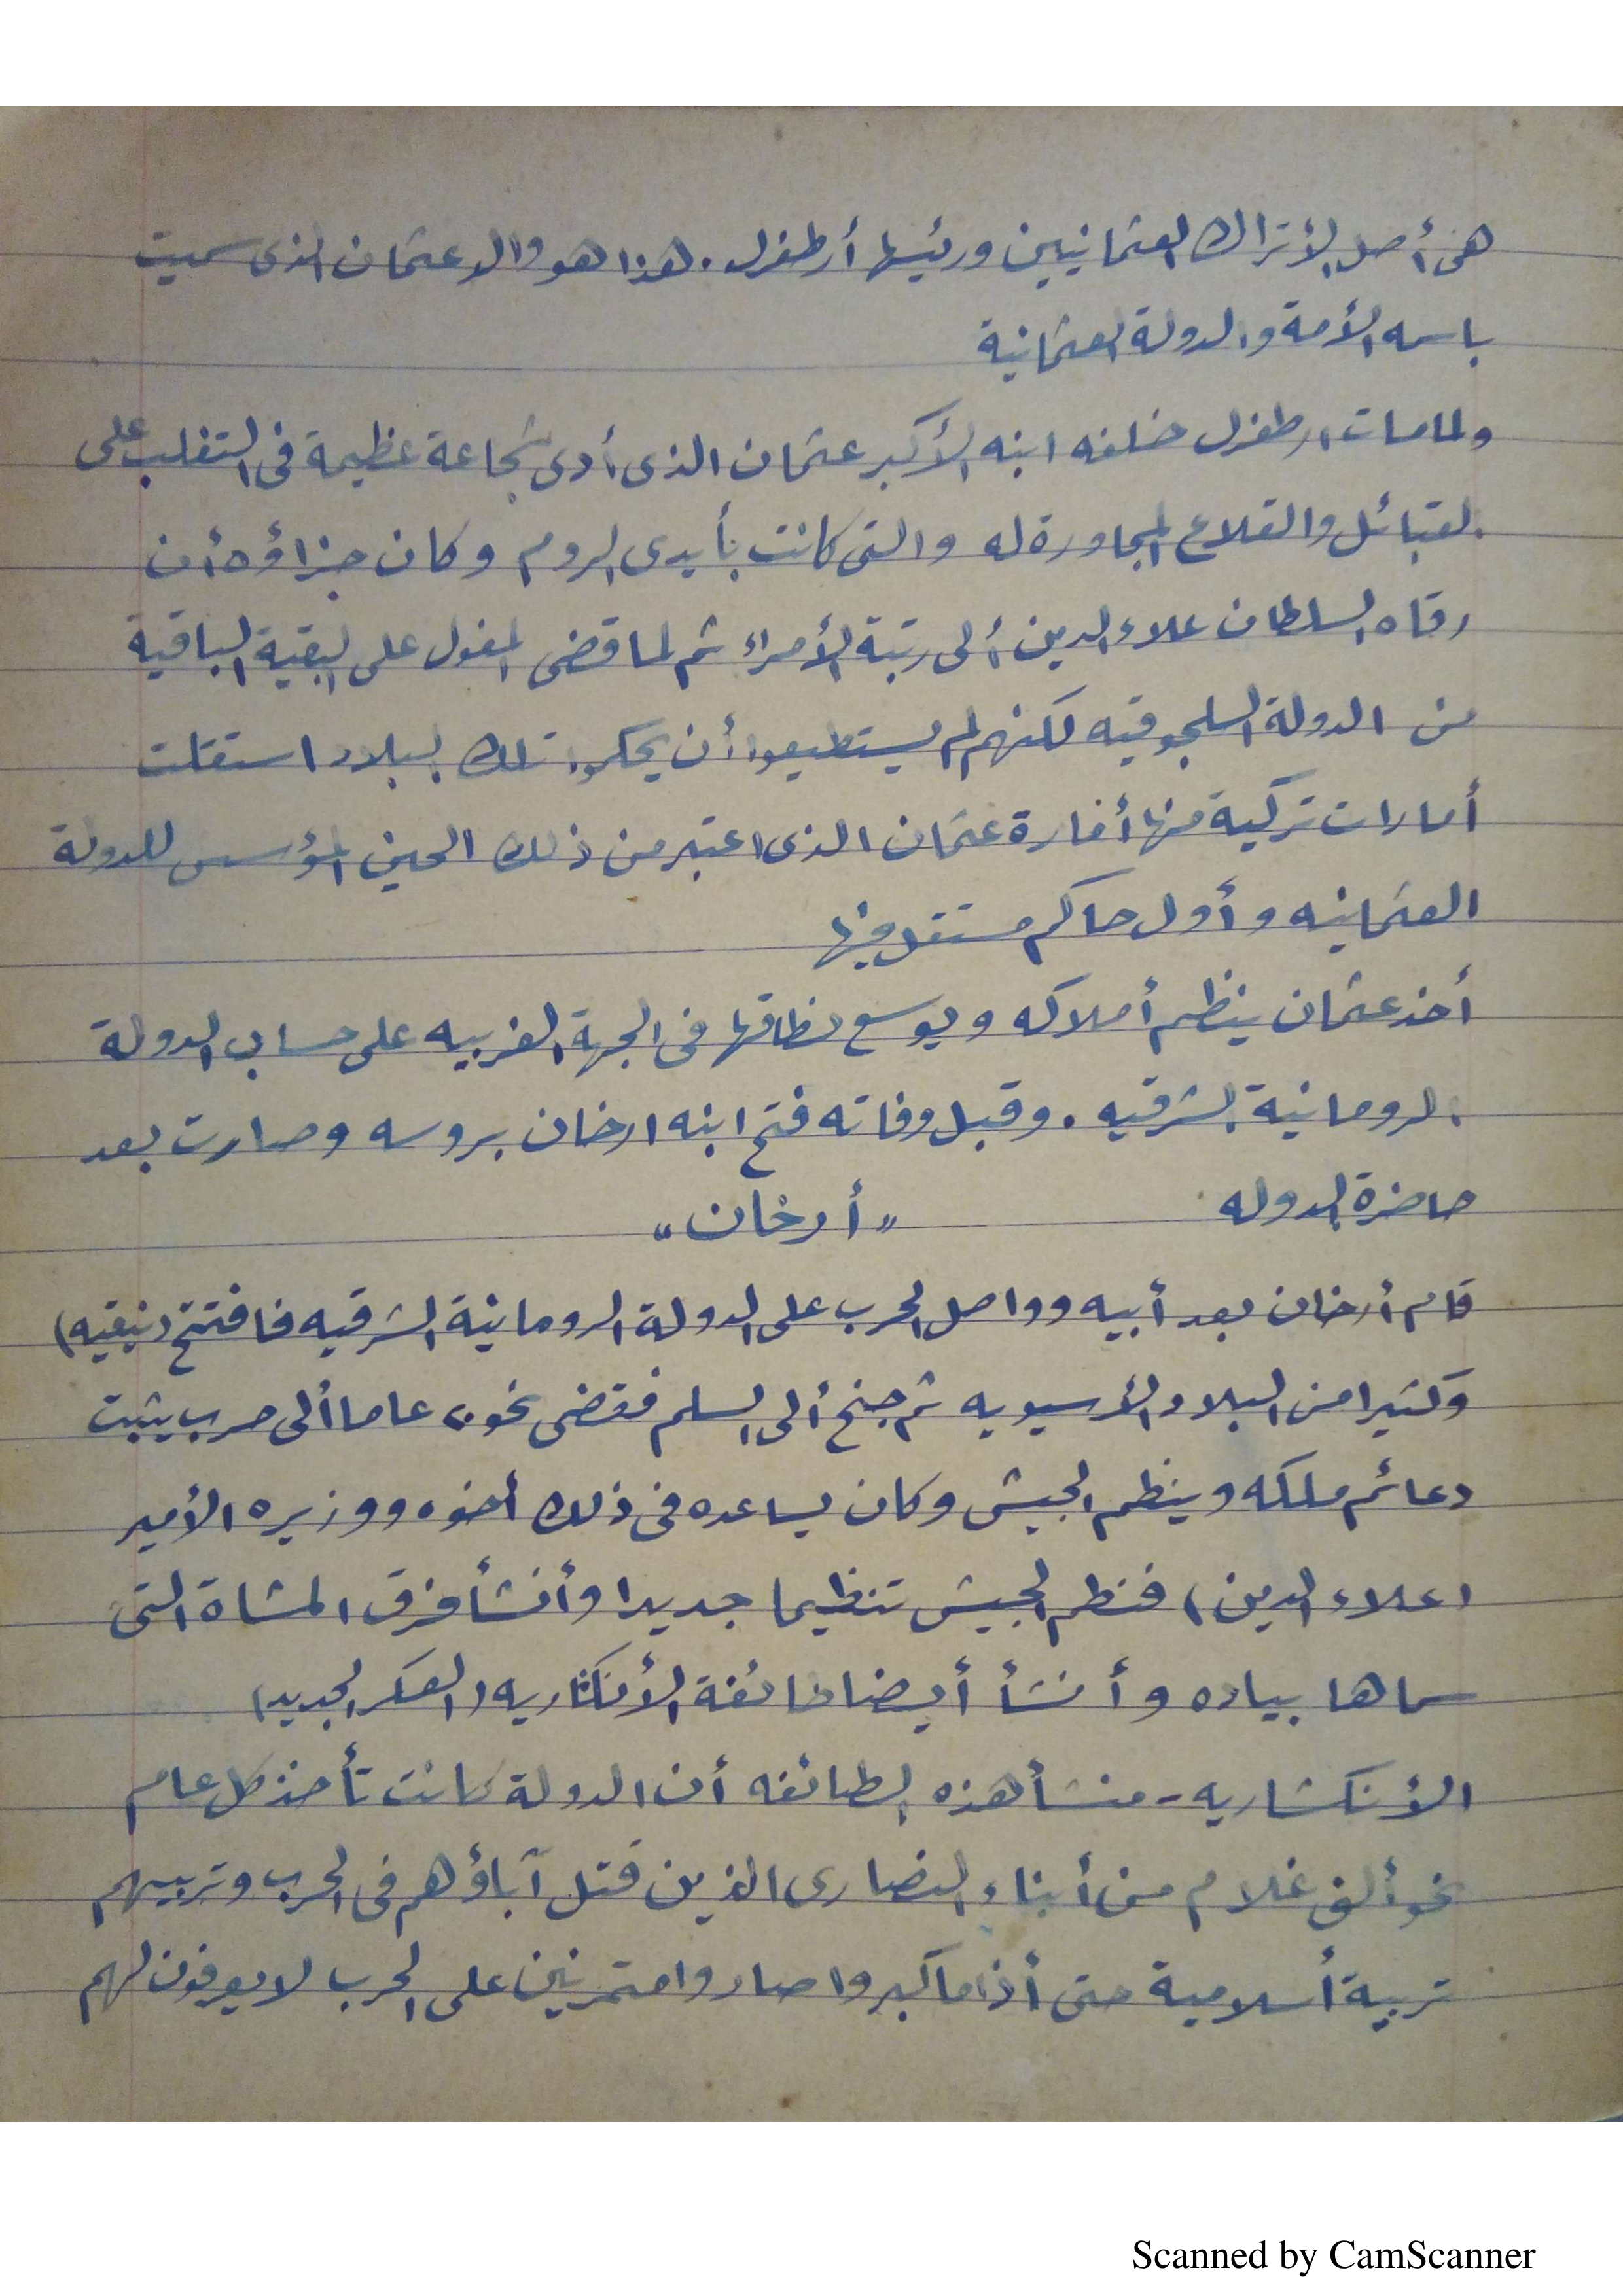 هى أصل الأتراك العثمانيين ورئيسها أرطغرل. هذا هو والد عثمان الذى سميت
باسمه الأمة والدولة العثمانية
ولما مات ارطغرل خلفه ابنه الأكبر عثمان الذى أدى شجاعة عظيمة فى التغلب على
القبائل والقلاع المجاورة له والتى كانت بأيدى الروم وكان جزاؤه أن
رقاه السلطان علاء الدين ألى رتبة الأمراء ثم لما قضى المغول على البقية الباقية
من الدولة السلجوقيه لكنهم لم يستطيعوا أن يحكموا تلك البلاد استقلت
أمارات تركية منها أمارة عثمان الذى اعتبر من ذلك الحين المؤسس للدولة
العثمانيه وأول حاكم مستقل فيها
أخذ عثمان ينظم أملاكه ويوسع نطاقها فى الجهة الغربيه على حساب الدولة
الرومانية الشرقيه. وقبل وفاته فتح ابنه ارخان بروسه وصارت بعد
حاضرة الدوله
"أرخان"
قام أرخان بعد أبيه وواصل الحرب على الدولة الرومانية الشرقيه فافتتح (نيقيه)
وكثيرا من البلاد الأسيويه ثم جنح ألى السلم فقضى نحو عاما ألى حرب يثبت
دعائم ملكه وينظم الجيش وكان يساعده فى ذلك أخوه ووزيره الأمير
(علاء الدين) فنظم الجيش تنظيما جديدا وأنشأ فرق المشاة التى
سماها بياده وأنشأ أيضا طائفة الأنكشاريه (العسكر الجديد)
الأنكشاريه - منشأ هذه الطائفه أن الدولة كانت تأخذ كل عام
نحو ألف غلام من أبناء النصارى الذين قتل آباؤهم فى الحرب وتربيهم
تربية أسلامية حتى أذا ما كبروا صاروا متمرنين على الحرب لا يعرفون لهم
Scanned by CamScanner